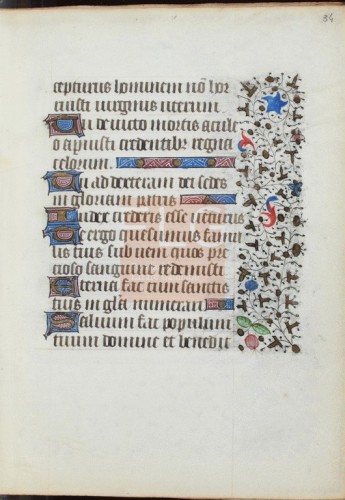 34
cepturus hominem nō hor
ruisti virginis uterum.
Tu devicto mortis aculeo
o apruisti credentibȝ regna
celorum.
Tu ad dexteram dei sedes
in gloriam patris
Iudex crederis esse venturus
Te ergo quesumus famu
lis tuis subveni quos pre
cioso sanguine redemisti
Eterna fac cum sanctis
tuis in glīa numerari
Salvum fac populum
tuum domine et benedic